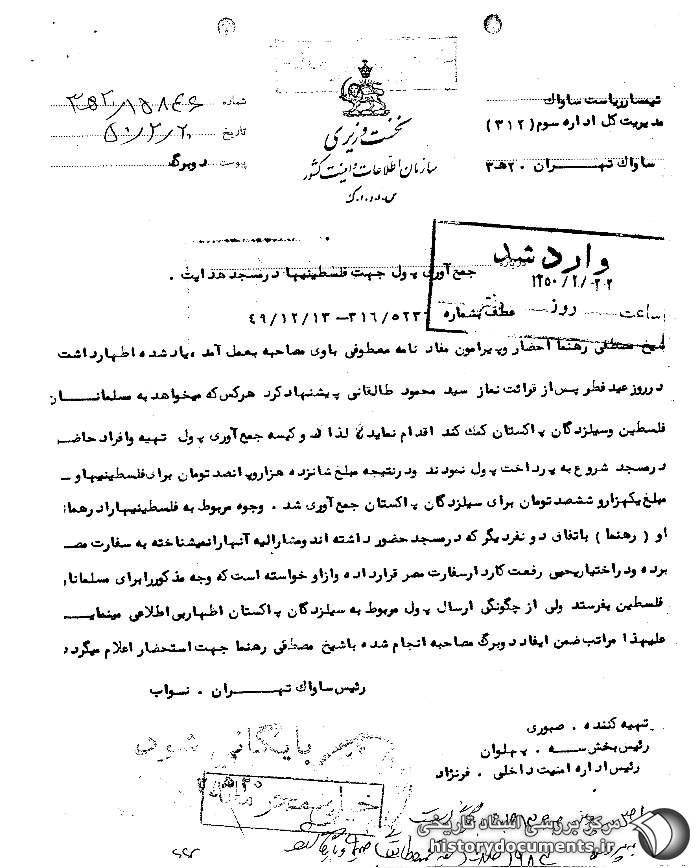 تیمسار ریاست ساواک
مدیریت کل اداره سوم (۳۱۲)
ساواک تهـــران ۲۰هـ۳
نخست وزیری
سازمان اطلاعات و امنیت کشور
س.ا.و.ا.ک
شماره
تاریخ ۵۰/۲/۲۰
پیوست دوبرگ
وارد شد
۱۳۵۰/۲/۲۲
ساعت روز
جمع آوری پول جهت فلسطینیها در مسجد هدایت .
عطف بشماره ۳۱۶/۵۲۳ – ۴۹/۱۲/۱۳
شیخ مصطفی رهنما احضار و پیرامون مفاد نامه معطوفی باوی مصاحبه بعمل آمد ، یاد شده اظهار داشت
در روز عید فطر پس از قرائت نماز سید محمود طالقانی پیشنهاد کرد هرکس که میخواهد به مسلمانـــان
فلسطین و سیلزدگان پاکستان کمک کند اقدام نماید لذا دو کیسه جمع آوری پول تهیه و افراد حاضـر
در مسجد شروع به پرداخت پول نمودند و در نتیجه مبلغ شانزده هزار و پانصد تومان برای فلسطینیها و ـ
مبلغ یکهزار و ششصد تومان برای سیلزدگان پاکستان جمع آوری شد . وجوه مربوط به فلسطینیها را رهنما
او ( رهنما ) باتفاق دو نفر دیگر که در مسجد حضور داشته اند و مشارالیه آنها را نمیشناخته به سفارت مصـ
برده و در اختیار یحیی رفعت کاردار سفارت مصر قرار داده و از او خواسته است که وجه مذکور را برای مسلمانان
فلسطین بفرستد ولی از چگونگی ارسال پول مربوط به سیلزدگان پاکستان اظهار بی اطلاعی مینمایـــد
علیهذا مراتب ضمن ایفاد دو برگ مصاحبه انجام شده با شیخ مصطفی رهنما جهت استحضار اعلام میگردد
رئیس ساواک تهـــران . نسواب
تهیه کننده . صبوری
رئیس بخش سه . پهلوان
رئیس اداره امنیت داخلی . فرنژاد
بایگانی شود
مرکز بررسی اسناد تاریخی
historydocuments.ir